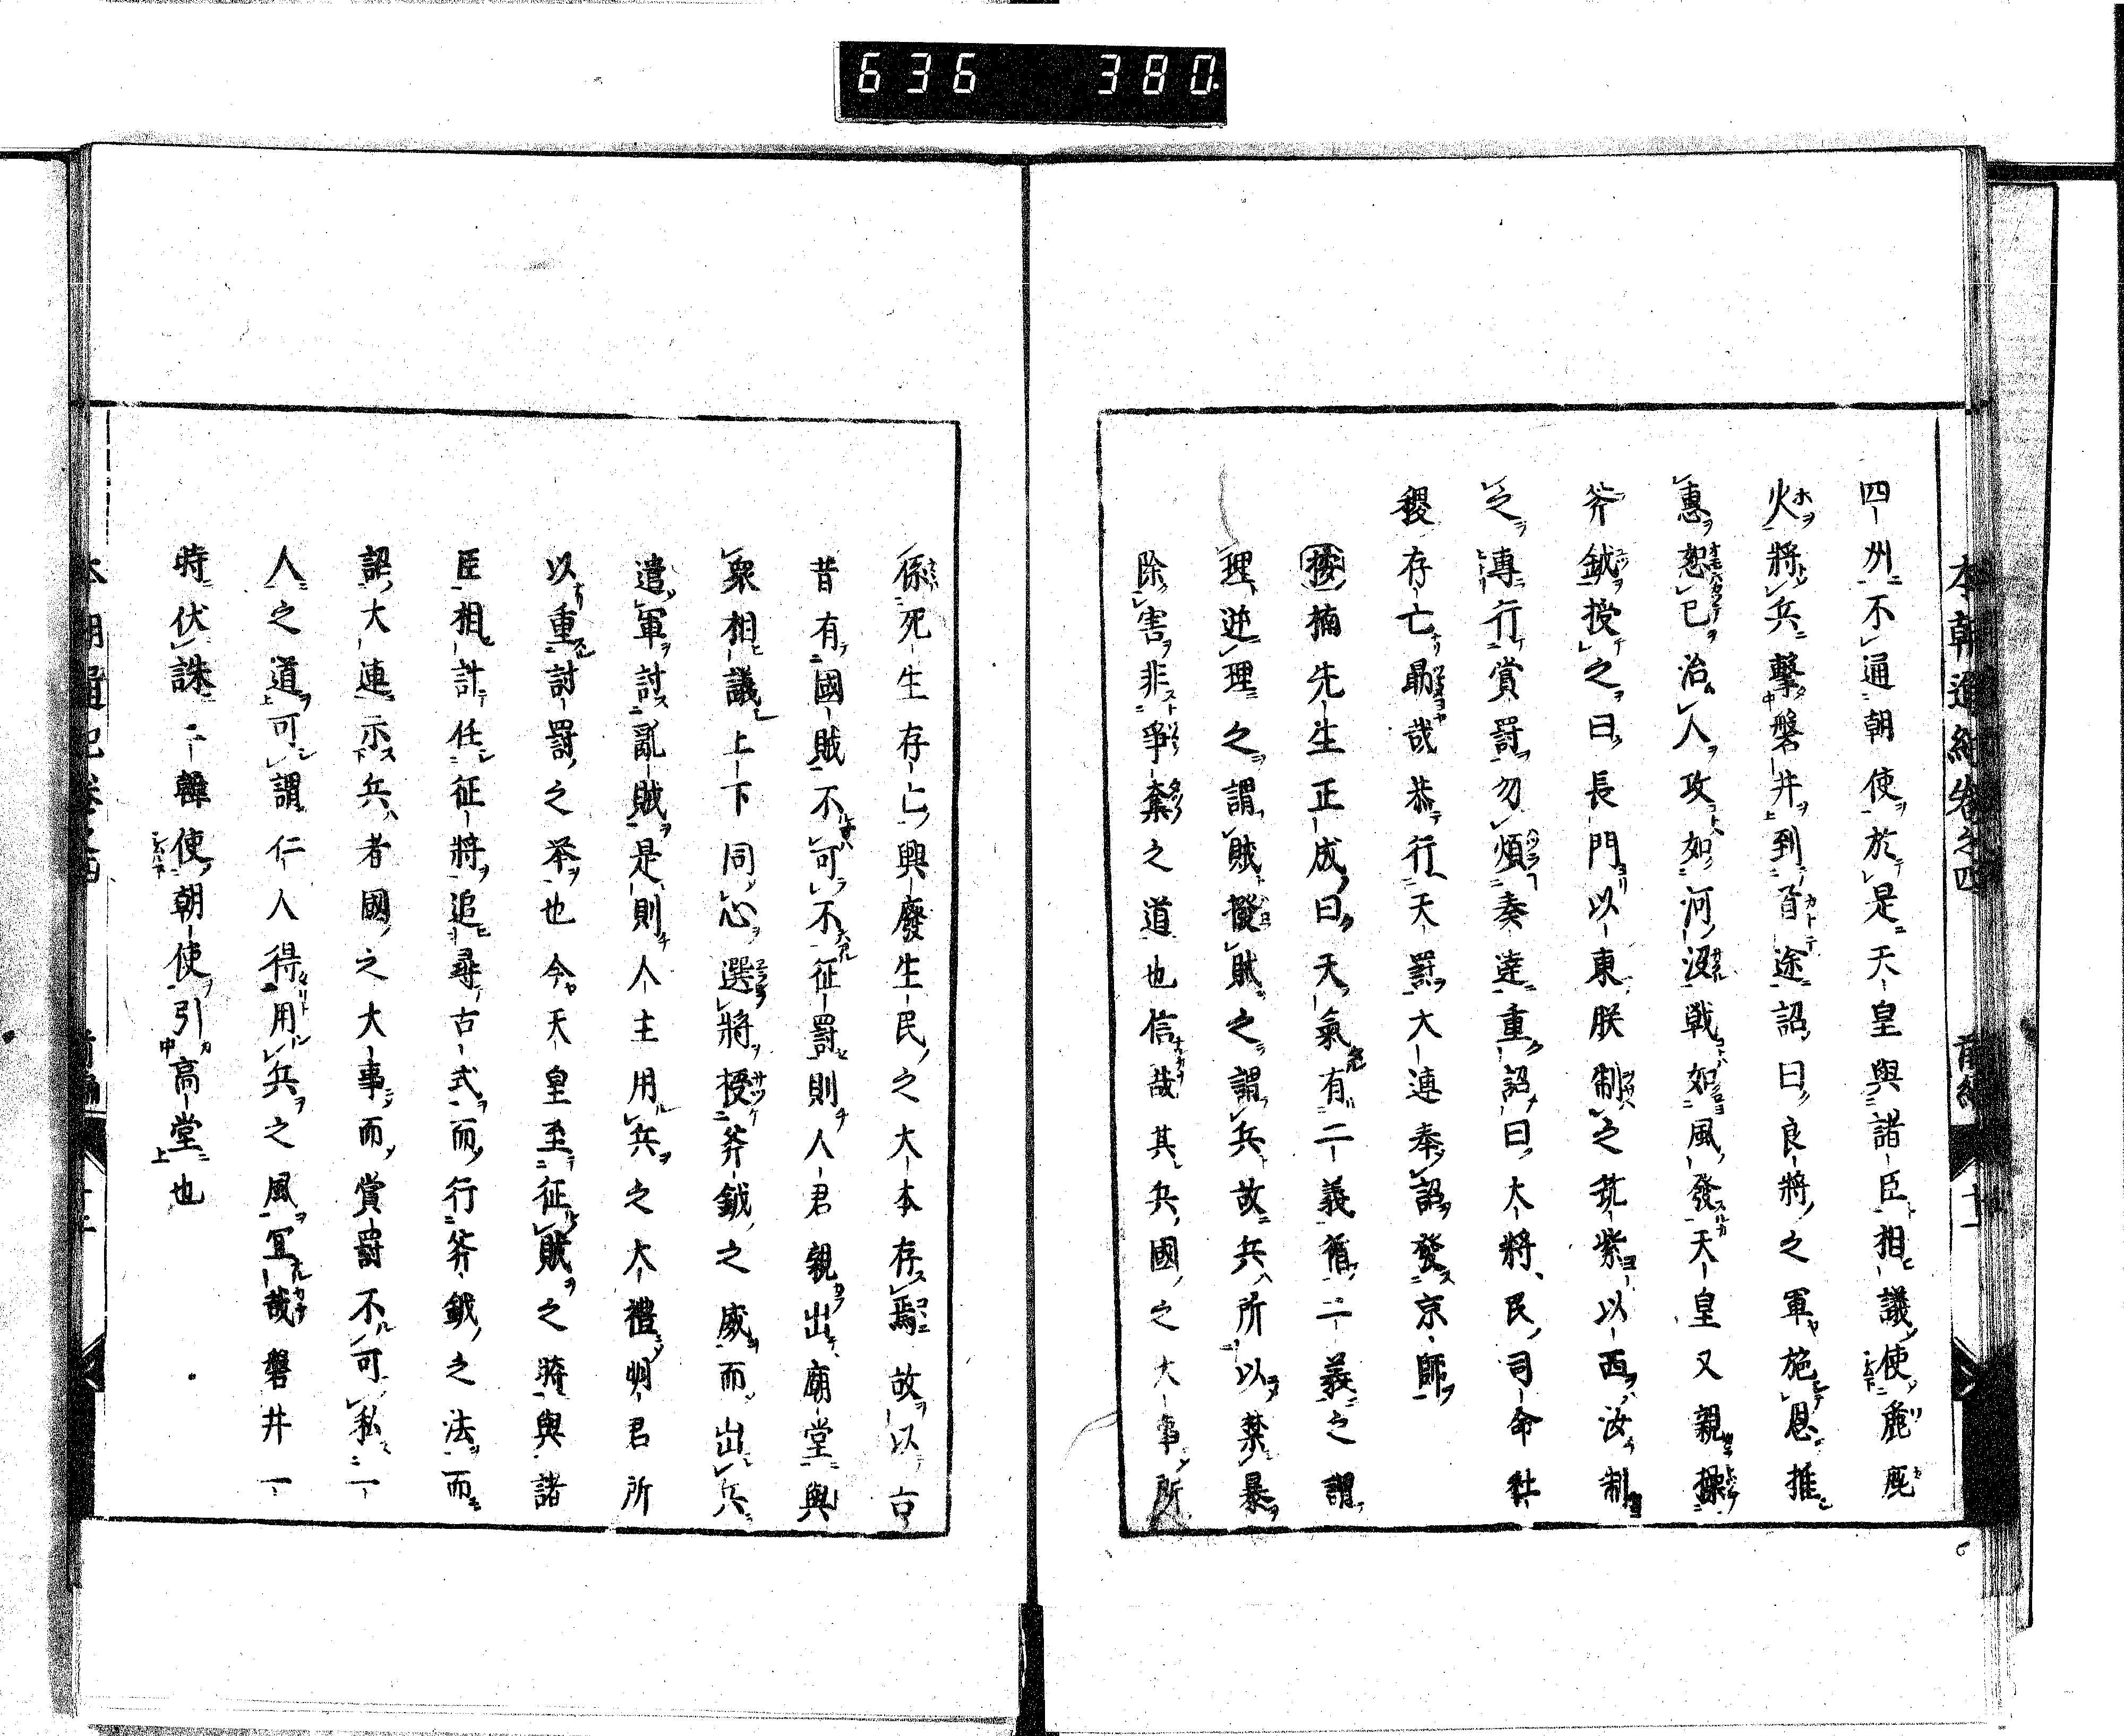 636 380
本朝通紀卷之四 前編 十一
四州不通朝使於是天皇與諸臣相議使麁鹿
火將兵擊磐井到首途詔曰良將之軍施恩推
惠恕己治人攻如河決戰如風發天皇又親操
斧鉞授之曰長門以東朕制之筑紫以西汝制
之專行賞罰勿煩奏達重詔曰大將民司命社
稷存亡勗哉恭行天罰大連奉詔發京師
按楠先生正成曰天氣有二義循二義之謂
理逆理之謂賊撥賊之謂兵故兵所以禁暴
除害非爭奪之道也信哉其兵國之大事所
係死生存亡興廢生民之大本存焉故以古
昔有國賊不可不征罰則人君親出廟堂與
衆相議上下同心選將授斧鉞之威而出兵
遣軍討亂賊是則人主用兵之大禮明君所
以重討罰之举也今天皇至征賊之時與諸
臣相計任征將追尋古式而行斧鉞之法而
詔大連示兵者國之大事而賞罰不可私一
人之道可謂仁人得用兵之風宜哉磐井一
時伏誅二韓使朝使引高堂也
本朝通紀卷之四 前編